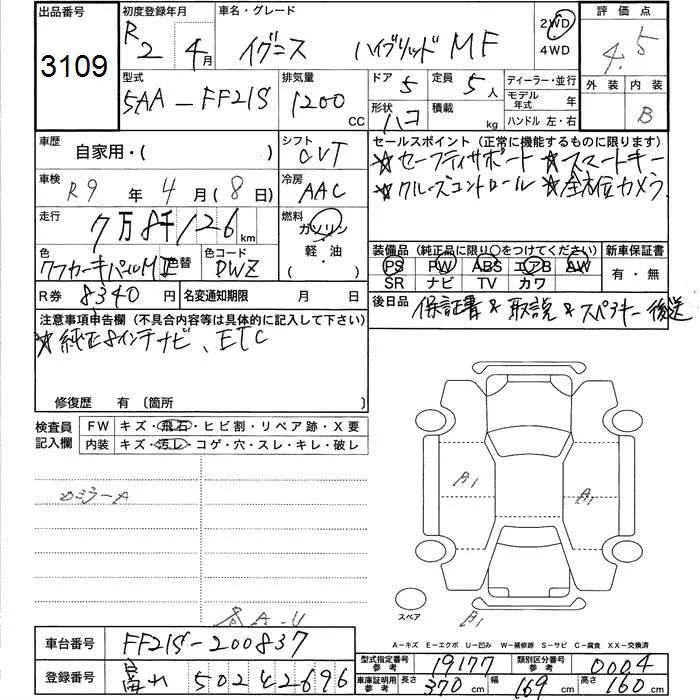 出品番号 初度登録年月 車名・グレード 2WD 4WD 評価点
3109 R2 4月 イグニス ハイブリッドMF 4.5
型式 排気量 ドア 定員 ディーラー・並行 外装 内装
5AA-FF21S 1200CC 5 5人 モデル年式 年 B
形状 ハコ 積載 kg ハンドル 左・右
車歴 自家用・( ) シフト CVT
セールスポイント(正常に機能するものに限ります)
☆セーフティサポート ☆スマートキー
☆クルーズコントロール ☆全方位カメラ
車検 R9年4月(8日) 冷房 AAC
走行 7万8千126km 燃料 ガソリン 軽油 ( )
装備品(純正品に限り○をつけてください) 新車保証書
PS PW ABS エアB AW 有・無
SR ナビ TV カワ
色 色替 色コード ZWD
R券 8340円 名変通知期限 月 日
後日品 保証書&取説&スペアキー後送
注意事項申告欄(不具合内容等は具体的に記入して下さい)
☆純正8インチナビ、ETC
修復歴 有 〔箇所
検査員記入欄 FW キズ・飛石・ヒビ割・リペア跡・X要
内装 キズ・汚レ・コゲ・穴・スレ・キレ・破レ
A1
A1
スペア
B1
A-キズ E-エクボ U-凹み W-補修跡 S-サビ C-腐食 XX-交換済
車台番号 FF21S-200837
型式指定番号 参考 19177 類別区分番号 参考 0004
登録番号 502 42696
車庫証明用参考 長さ 370cm 幅 169cm 高さ 160cm